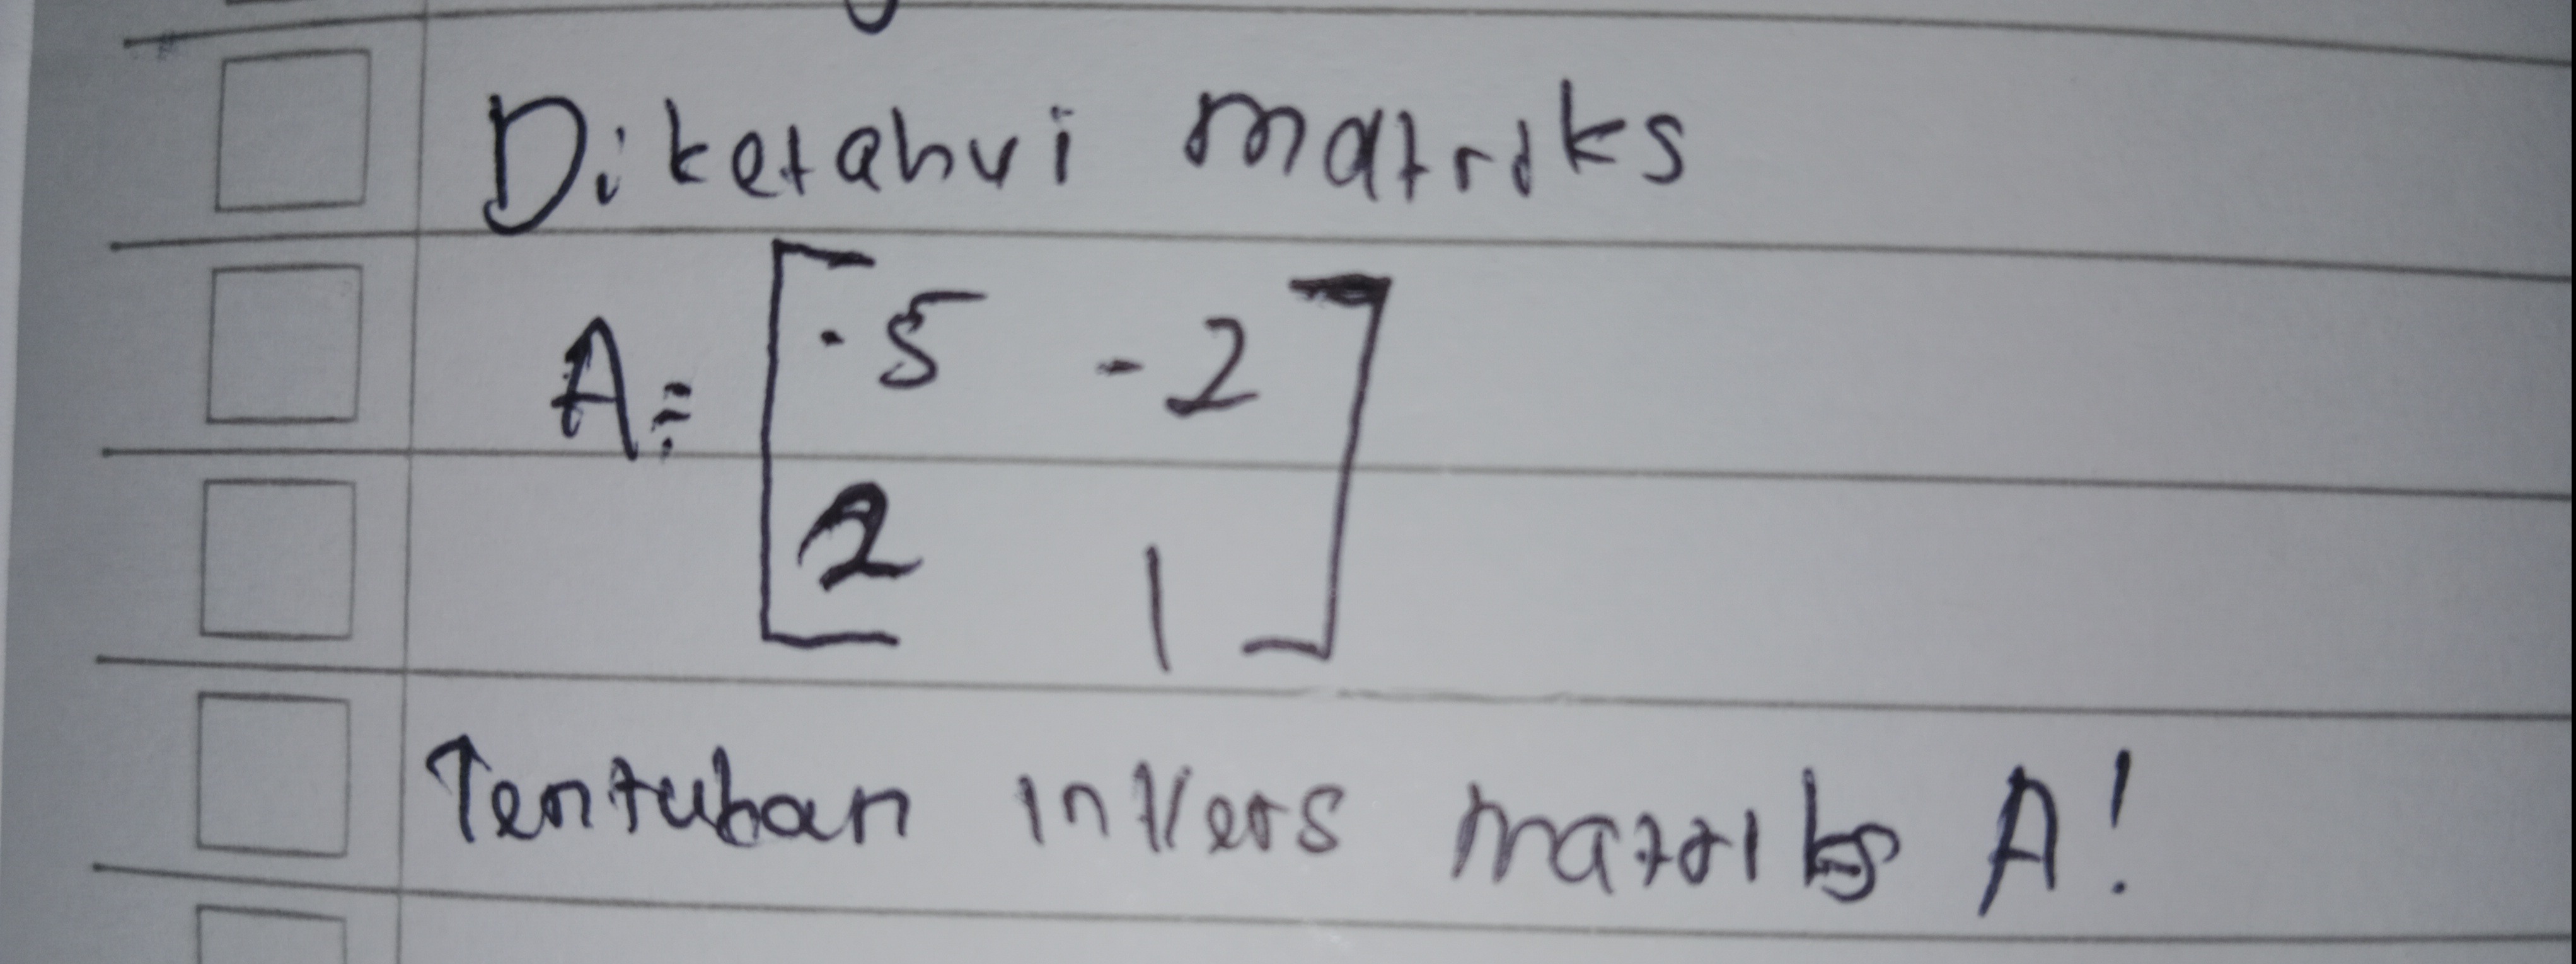 Diketahui matriks
A = [-5 -2
2 1]
Tentukan invers matriks A!